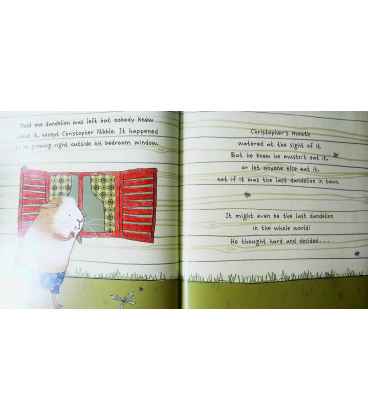 one dandelion was left but nobody knew
about it, except Christopher Nibble. It happened
to be growing right outside his bedroom window.
Christopher's mouth
watered at the sight of it.
But he knew he mustn't eat it,
or let anyone else eat it,
not if it was the last dandelion in town.
It might even be the last dandelion
in the whole world!
He thought hard and decided...